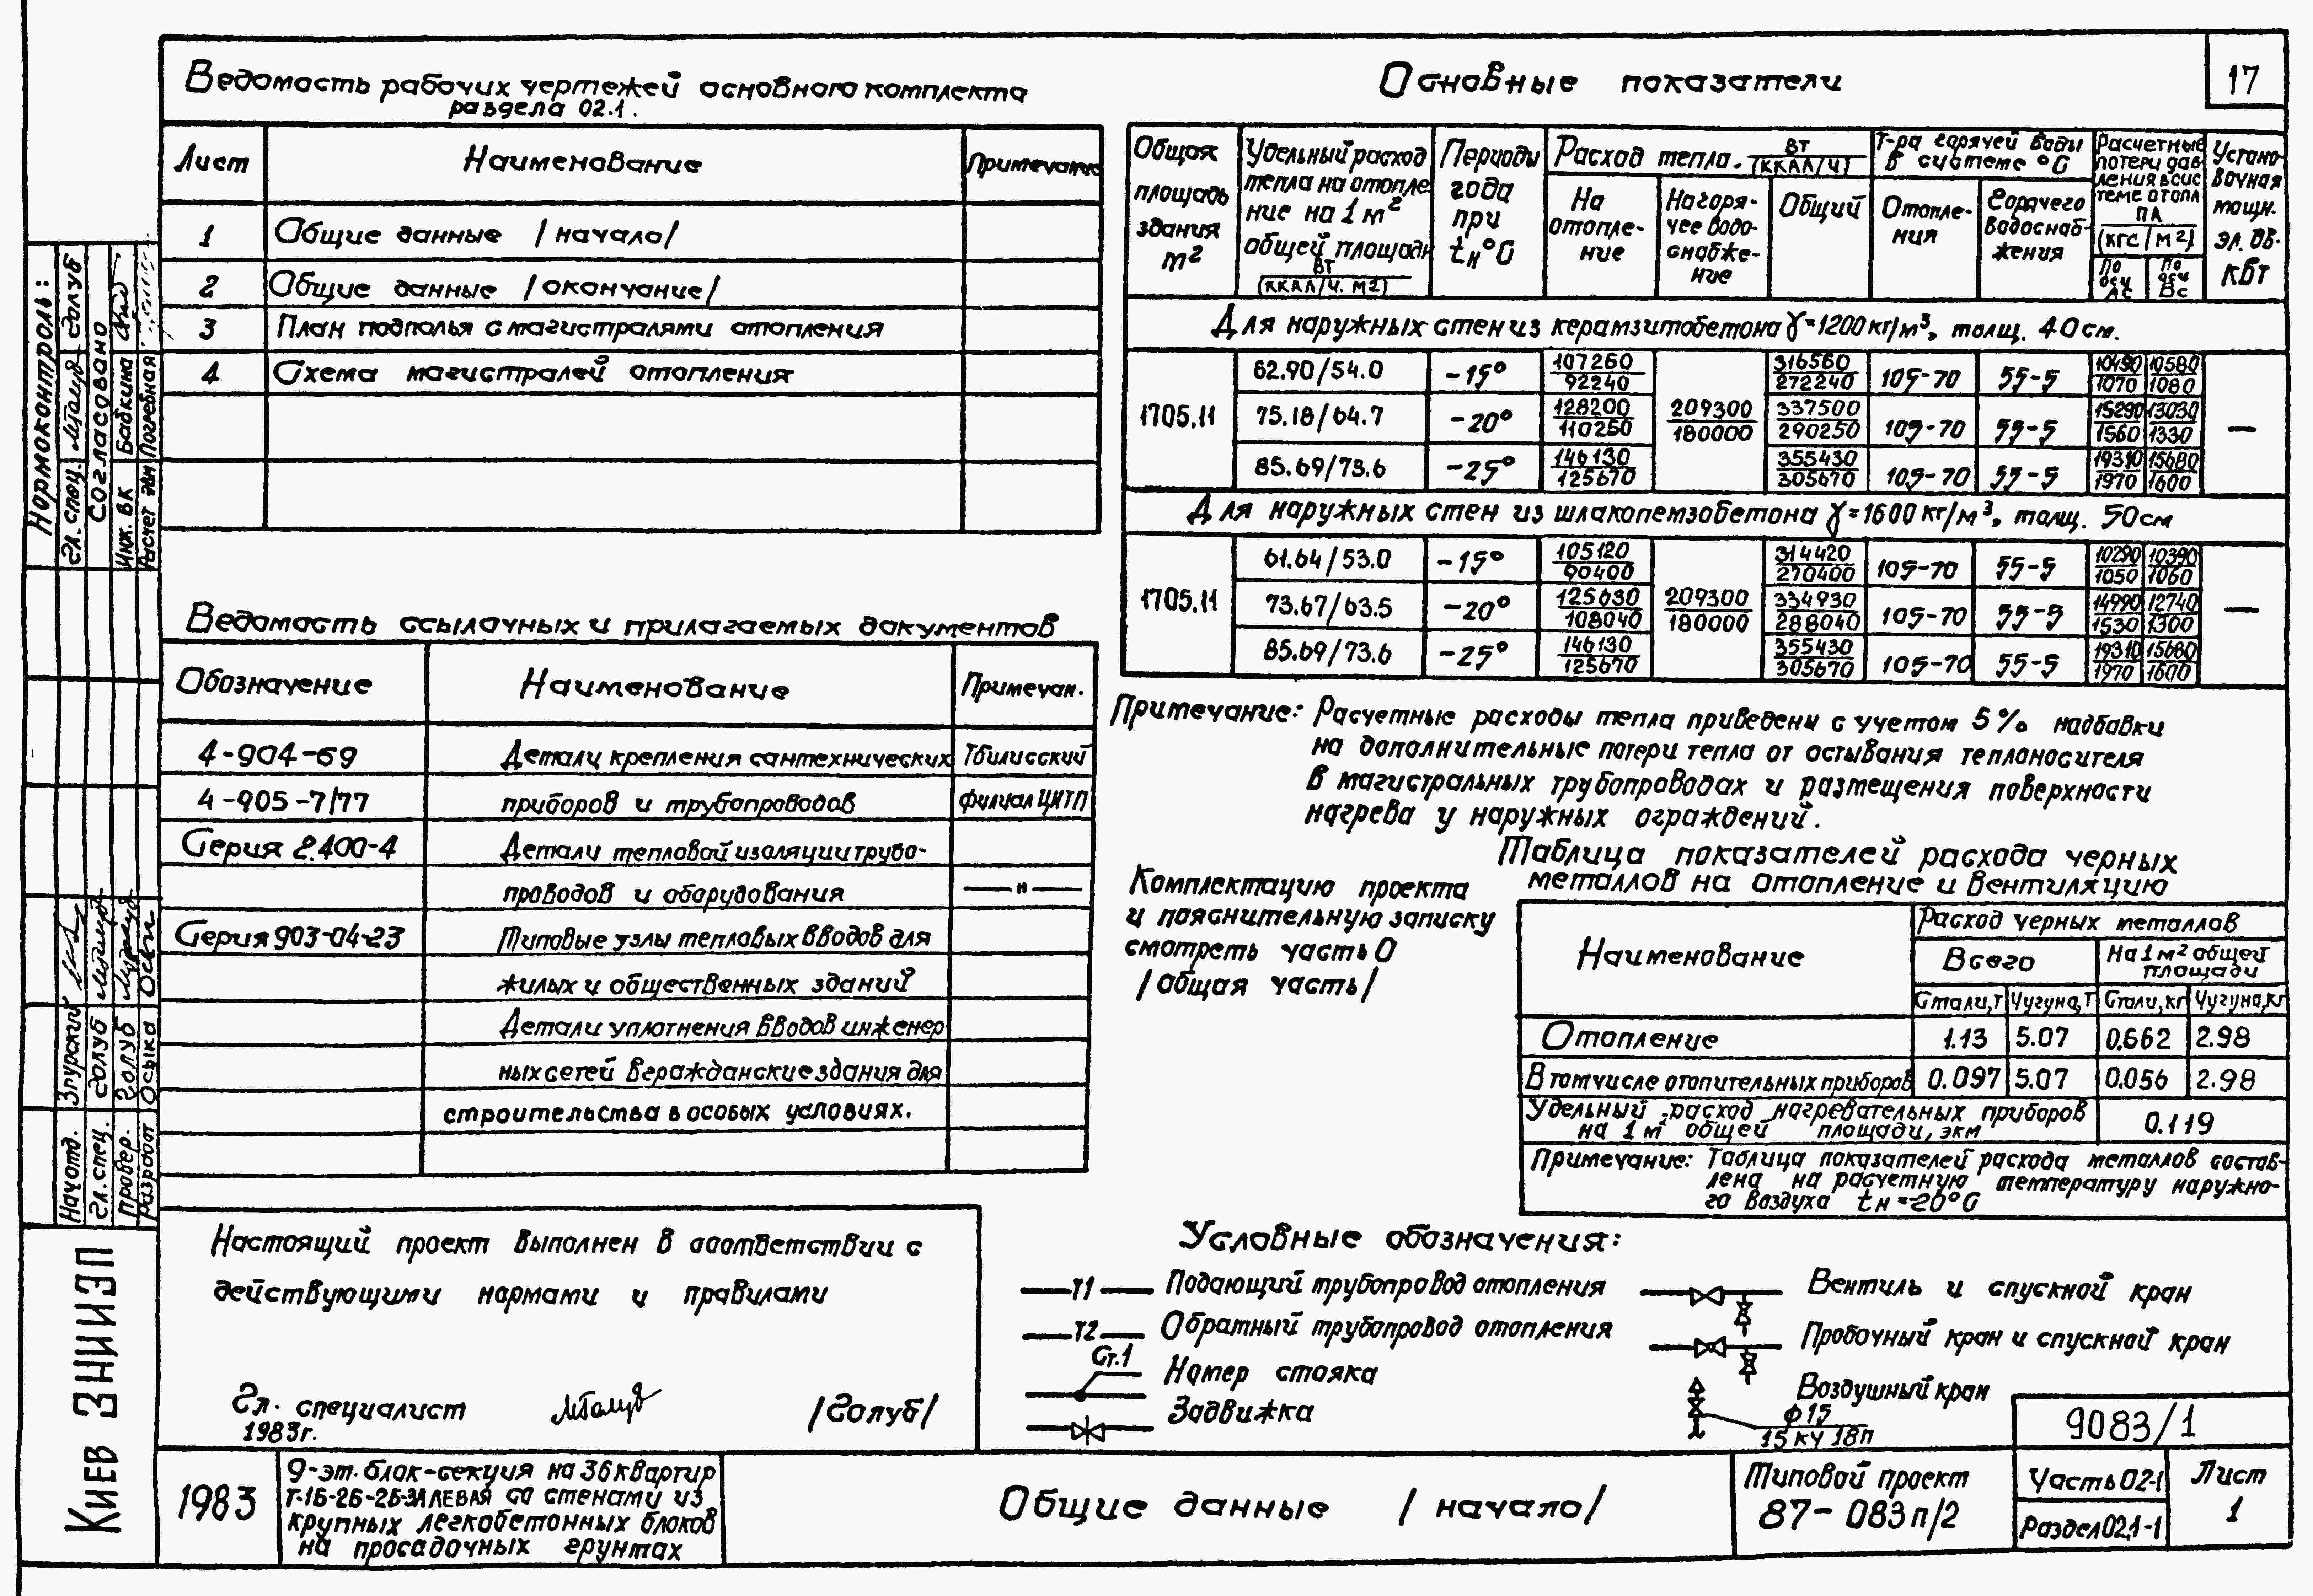 17
Ведомость рабочих чертежей основного комплекта
раздела 02.1.
Лист Наименование Примечание
1 Общие данные /начало/
2 Общие данные /окончание/
3 План подполья с магистралями отопления
4 Схема магистралей отопления
Ведомость ссылочных и прилагаемых документов
Обозначение Наименование Примечан.
4-904-69 Детали крепления сантехнических Тбилисский
4-905-7/77 приборов и трубопроводов филиал ЦИТП
Серия 2.400-4 Детали тепловой изоляции трубо-
проводов и оборудования — " —
Серия 903-04-23 Типовые узлы тепловых вводов для
жилых и общественных зданий
Детали уплотнения вводов инженер
ных сетей в гражданские здания для
строительства в особых условиях.
Основные показатели
Общая площадь здания м²
Удельный расход тепла на отопление на 1 м² общей площади ВТ (ККАЛ/Ч. М2)
Периоды года при tн °С
Расход тепла. ВТ (ККАЛ/Ч)
На отопле-ние
На горя-чее водо-снабже-ние
Общий
Т-ра горячей воды в системе °С
Отопле-ния
Горячего водоснаб-жения
Расчетные потери дав ления в сис теме отопл ПА (КГС/М2)
По оси Ас
По оси Вс
Устано-вочная мощн. эл. дв. кВт
Для наружных стен из керамзитобетона γ=1200 кг/м³, толщ. 40 см.
1705.11
62.90/54.0 -15° 107260/92240 316560/272240 105-70 55-5 10490/1070 10580/1080
75.18/64.7 -20° 128200/110250 209300/180000 337500/290250 105-70 55-5 15290/1560 13030/1330 —
85.69/73.6 -25° 146130/125670 355430/305670 105-70 55-5 19310/1970 15680/1600
Для наружных стен из шлакопемзобетона γ=1600 кг/м³, толщ. 50 см
1705.11
61.64/53.0 -15° 105120/90400 314420/270400 105-70 55-5 10290/1050 10390/1060
73.67/63.5 -20° 125630/108040 209300/180000 334930/288040 105-70 55-5 14990/1530 12740/1300 —
85.69/73.6 -25° 146130/125670 355430/305670 105-70 55-5 19310/1970 15680/1600
Примечание: Расчетные расходы тепла приведены с учетом 5% надбавки
на дополнительные потери тепла от остывания теплоносителя
в магистральных трубопроводах и размещения поверхности
нагрева у наружных ограждений.
Комплектацию проекта
и пояснительную записку
смотреть часть 0
/общая часть/
Таблица показателей расхода черных
металлов на отопление и вентиляцию
Наименование Расход черных металлов
Всего На 1 м² общей площади
Стали, т Чугуна, т Стали, кг Чугуна, кг
Отопление 1.13 5.07 0.662 2.98
В том числе отопительных приборов 0.097 5.07 0.056 2.98
Удельный расход нагревательных приборов
на 1 м² общей площади, экм 0.119
Примечание: Таблица показателей расхода металлов состав-
лена на расчетную температуру наружно-
го воздуха tн=-20°С
Настоящий проект выполнен в соответствии с
действующими нормами и правилами
Гл. специалист /Голуб/
1983г.
Условные обозначения:
Т1 Подающий трубопровод отопления
Т2 Обратный трубопровод отопления
Ст.1 Номер стояка
Задвижка
Вентиль и спускной кран
Пробочный кран и спускной кран
Воздушный кран
ф15
15 кч 18п
9083/1
1983
9-эт. блок-секция на 36 квартир
Т-1Б-2Б-2Б-3А ЛЕВАЯ со стенами из
крупных легкобетонных блоков
на просадочных грунтах
Общие данные /начало/
Типовой проект
87-083п/2
Часть 02-1
Раздел 02.1-1
Лист
1
Нормоконтроль:
Гл. спец. Голуб
Согласовано
Инж. ВК Бабкина
Расчет эвм Погребная
Нач отд. Згурский
Гл. спец. Голуб
Провер. Голуб
Разработ Осыка
Киев ЗНИИЭП